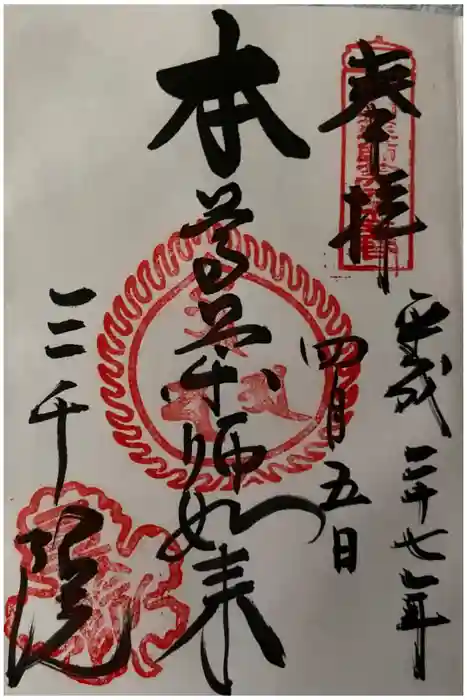 奉拝
平成二十七年
四月五日
本尊薬師如来
三千院